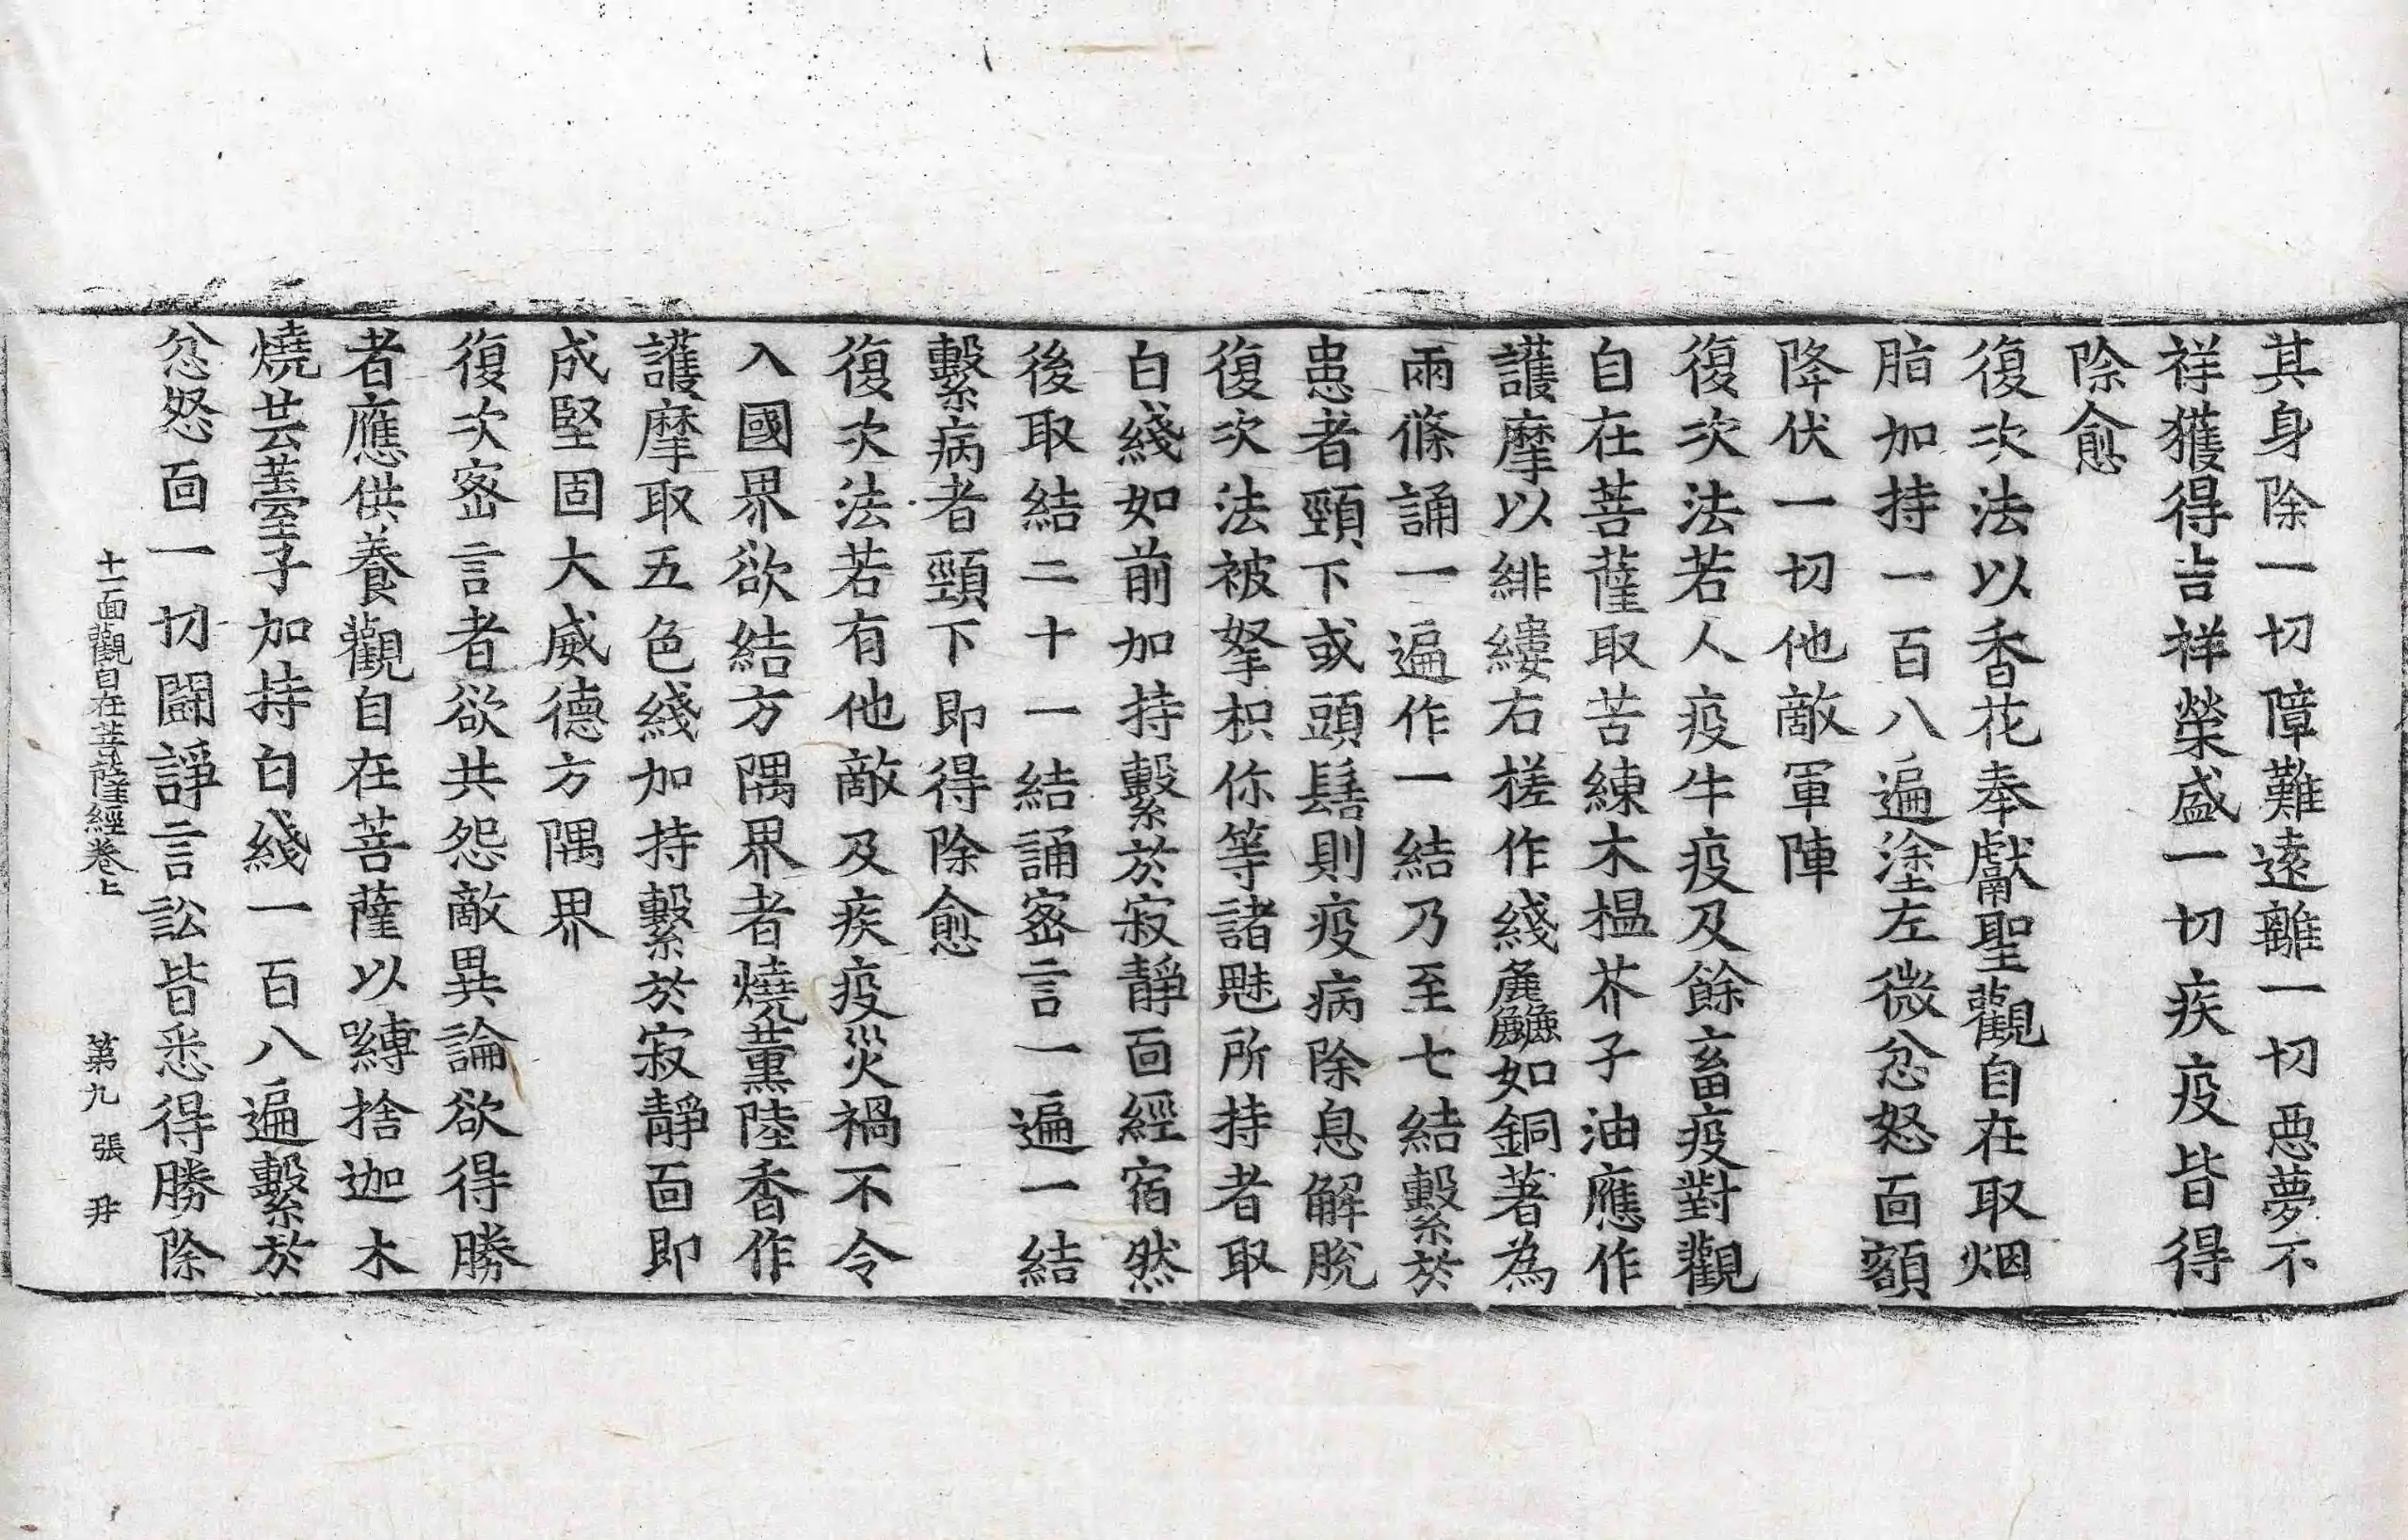 其身除一切障難遠離一切惡夢不
祥獲得吉祥榮盛一切疾疫皆得
除愈
復次法以香花奉獻聖觀自在取烟
脂加持一百八遍塗左微忿怒面額
降伏一切他敵軍陣
復次法若人疫牛疫及餘畜疫對觀
自在菩薩取苦練木榅芥子油應作
護摩以緋縷右搓作綫麁麤如銅著為
兩條誦一遍作一結乃至七結繫於
患者頸下或頭髻則疫病除息解脫
復次法被拏枳你等諸魅所持者取
白綫如前加持繫於寂靜面經宿然
後取結二十一結誦密言一遍一結
繫病者頸下即得除愈
復次法若有他敵及疾疫災禍不令
入國界欲結方隅界者燒薰陸香作
護摩取五色綫加持繫於寂靜面即
成堅固大威德方隅界
復次密言者欲共怨敵異論欲得勝
者應供養觀自在菩薩以嚩捨迦木
燒芸薹子加持白綫一百八遍繫於
忿怒面一切鬪諍言訟皆悉得勝除
十一面觀自在菩薩經卷上 第九張